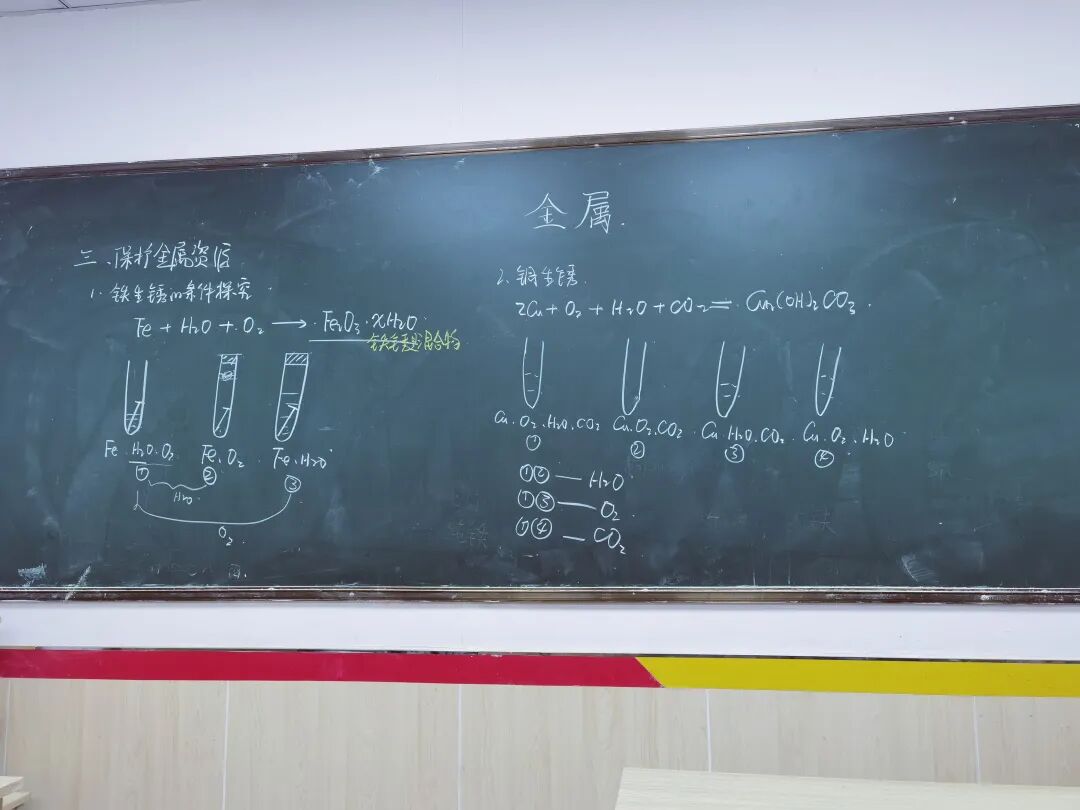 金属.
三、保护金属资源
1. 铁生锈的条件探究
Fe + H2O + O2 → Fe2O3·xH2O.
铁锈是混合物
Fe.H2O.O2 Fe.O2 Fe.H2O
① ② ③
H2O
O2
2. 铜生锈.
2Cu + O2 + H2O + CO2 = Cu2(OH)2CO3.
Cu.O2.H2O.CO2 Cu.O2.CO2 Cu.H2O.CO2. Cu.O2.H2O
① ② ③ ④
①② — H2O
①③ — O2
①④ — CO2